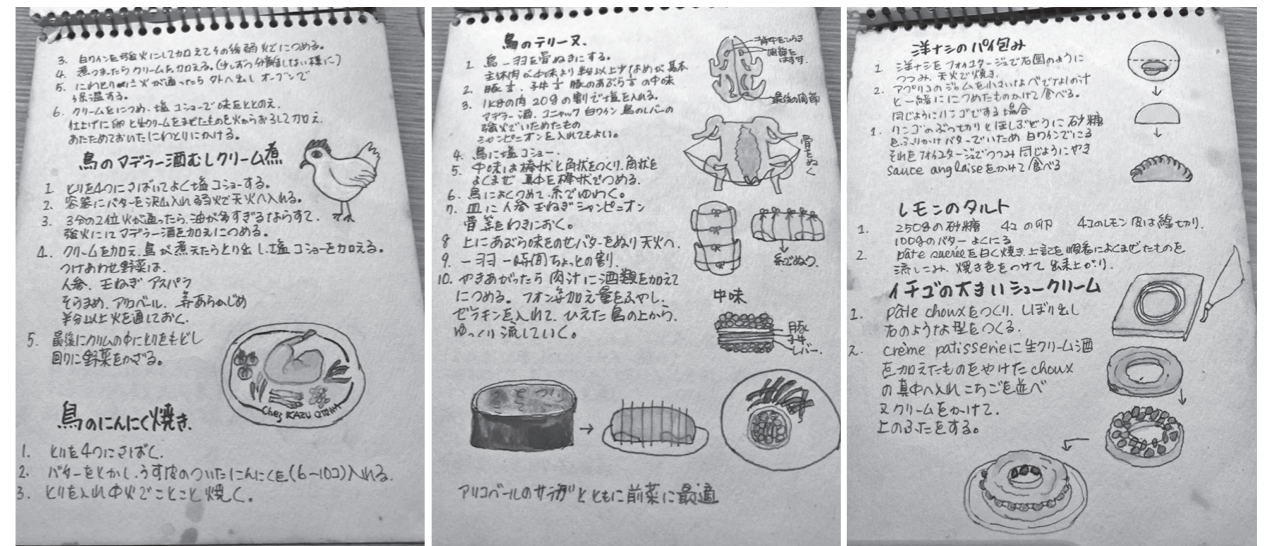 3. 白ワインを強火にして加えてその後弱火でにつめる。
4. 煮つまったらクリームを加える。
5. にわとりに火が通ったらとり出し オーブンで
保温する。
6. クリームをにつめ、塩 コショーで味をととのえ、
仕上げに卵と生クリームをまぜたものを火からおろして加え、
あたためておいたにわとりにかける。
鳥のマデラー酒むしクリーム煮
1. とりを4つにさばいてよく塩コショーする。
2. 容器にバターを沢山入れ弱火で天火へ入れる。
3. 3分の2位火が通ったら、油が多すぎるならすて、
強火にしマデラー酒を加えにつめる。
4. クリームを加え、鳥が煮えたらとり出し、塩コショーを加える。
つけあわせ野菜は、
人参、玉ねぎ アスパラ
そらまめ、アリコベール、あらかじめ
半分以上火を通しておく。
5. 最後にクリームの中にとりをもどし
回りに野菜をかざる。
Chef KAZU
鳥のにんにく焼き
1. とりを4つにさばく。
2. バターをとかし、うす皮のついたにんにくを(6〜10コ)入れる。
3. とりを入れ中火でことこと焼く。
鳥のテリーヌ
1. 鳥一羽を骨ぬきにする。
2. 豚 子牛 豚のあぶら 中味
3. 1kgの肉 20gの割で塩を入れる。
マデラー酒、コニャック 白ワイン 鳥のレバーの
強火でいためたもの
シャンピニオンを入れてもよい。
4. 鳥に塩コショー。
5. 中味は棒状と角状をつくり、角状を
よくまぜ 真中を棒状でつめる。
6. 鳥によくつめて、糸でゆわく。
7. 皿に人参 玉ねぎ シャンピニオン
骨等をわきにおく。
8 上にあぶら味をのせバターをぬり天火へ。
9. 一羽 一時間ちょっとの割。
10. やきあがったら 肉汁に酒類を加えて
につめる。フォン等加え量をふやし、
ゼラチンを入れて、ひえた鳥の上から、
ゆっくり流していく。
最後の関節
骨をぬく
糸でぬう。
中味
豚
子牛
レバー。
アリコベールのサラダとともに前菜に最適
洋ナシのパイ包み
1. 洋ナシをフォイタージュで右図のように
つつみ、天火で焼き、
2. アプリコのジャムを小さいなべでナシの汁
と一緒ににつめたものをかけて食べる。
同じようにリンゴでする場合
1. リンゴのぶつぎりとほしぶどうに砂糖
をふりかけバターでいため 白ワインでにる
それをフォイタージュでつつみ 同じようにやき
sauce anglaiseをかけて食べる
レモンのタルト
1. 250gの砂糖 4コの卵 4コのレモン 皮は線切り、
100gのバター よくにる
2. pâte sucréeを白く焼き、上記を順番によくまぜたものを
流しこみ、焼き色をつけて出来上がり。
イチゴの大きいシュークリーム
1. pâte chouxをつくり、しぼり出し
右のような型をつくる。
2. crème patisserieに生クリーム酒
を加えたものをやけた choux
の真中へ入れ、いちごを並べ
又クリームをかけて、
上のふたをする。